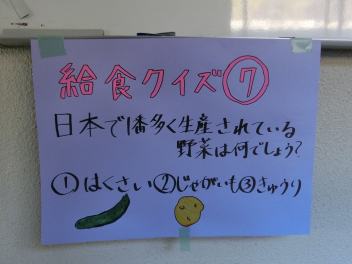 給食クイズ⑦
日本で1番多く生産されている
野菜は何でしょう?
①はくさい②じゃがいも③きゅうり